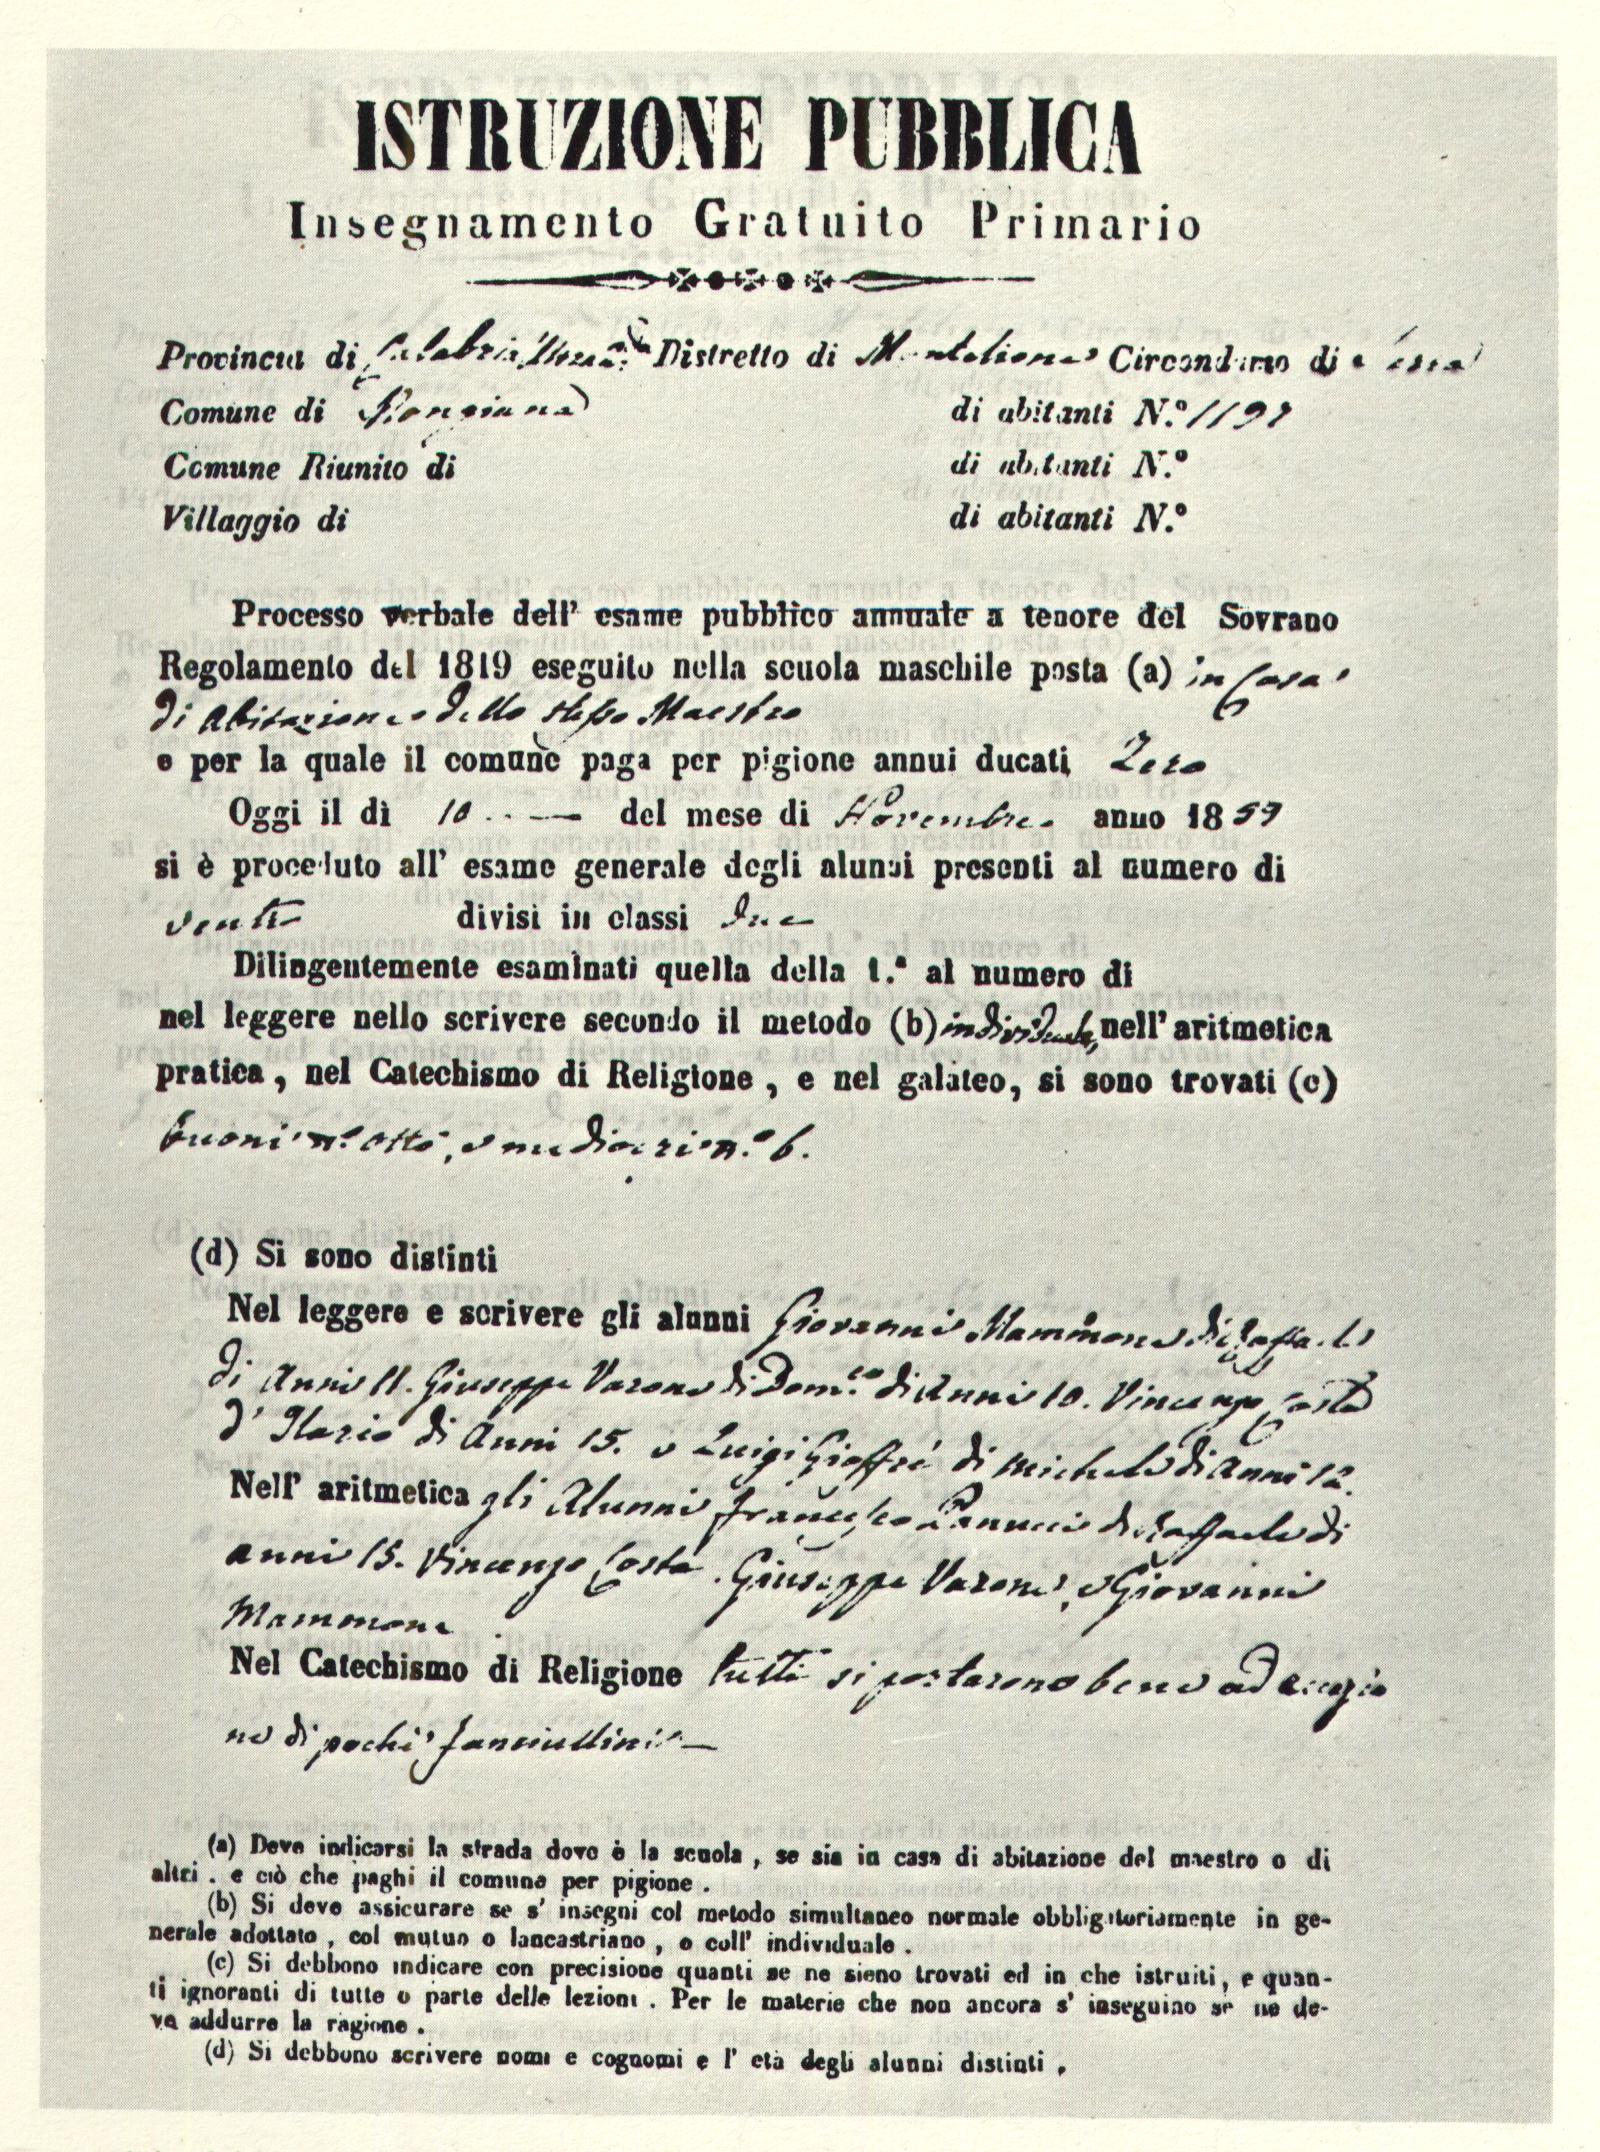 ISTRUZIONE PUBBLICA
Insegnamento Gratuito Primario
Provincia di Calabria Ultra 2a Distretto di Monteleone Circondario di
Comune di Mongiana di abitanti N.º 1197
Comune Riunito di di abitanti N.º
Villaggio di di abitanti N.º
Processo verbale dell' esame pubblico annuale a tenore del Sovrano
Regolamento del 1819 eseguito nella scuola maschile posta (a) in Casa
di abitazione dello stesso Maestro
e per la quale il comune paga per pigione annui ducati Zero
Oggi il dì 10 .. — del mese di Novembre anno 1859
si è proceduto all' esame generale degli alunni presenti al numero di
venti divisi in classi due
Dilingentemente esaminati quella della 1.ª al numero di
nel leggere nello scrivere secondo il metodo (b) individuale, nell' aritmetica
pratica, nel Catechismo di Religione, e nel galateo, si sono trovati (c)
buoni n.º otto, e mediocri n.º 6.
(d) Si sono distinti
Nel leggere e scrivere gli alunni Giovanni Mammone di Raffaele
di Anni 11. Giuseppe Varone di Dom.co di Anni 10. Vincenzo Costa
d' Ilario di Anni 15. e Luigi Gioffré di Michele di Anni 12.
Nell' aritmetica gli Alunni Francesco Panucci di Raffaele di
anni 15. Vincenzo Costa. Giuseppe Varone, e Giovanni
Mammone
Nel Catechismo di Religione tutti si portarono bene ad eccezio
ne di pochi fanciullini —
(a) Deve indicarsi la strada dove è la scuola, se sia in casa di abitazione del maestro o di
altri. e ciò che paghi il comune per pigione.
(b) Si deve assicurare se s' insegni col metodo simultaneo normale obbligatoriamente in ge-
nerale adottato, col mutuo o lancastriano, o coll' individuale.
(c) Si debbono indicare con precisione quanti se ne sieno trovati ed in che istruiti, e quan-
ti ignoranti di tutte o parte delle lezioni. Per le materie che non ancora s' inseguino se ne de-
ve addurre la ragione.
(d) Si debbono scrivere nomi e cognomi e l' età degli alunni distinti.